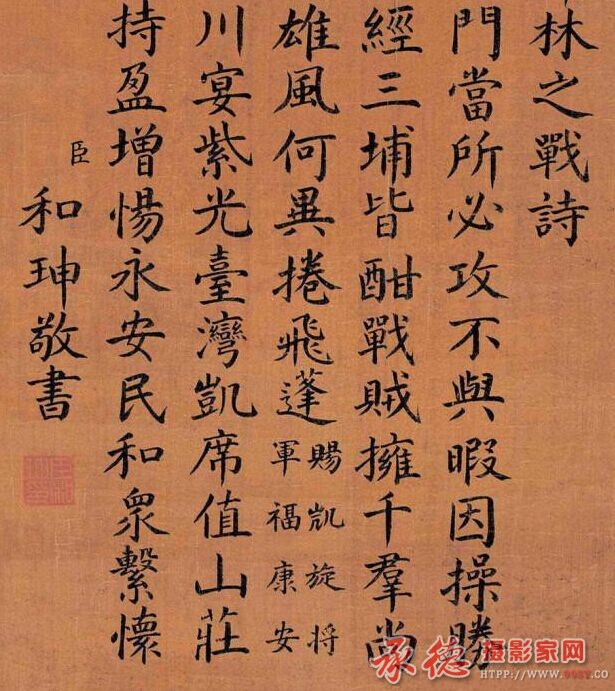 林之戰詩
門當所必攻不與暇因操勝
經三埔皆酣戰賊擁千羣尚
雄風何異捲飛蓬賜凱旋将
軍福康安
川宴紫光臺灣凱席值山莊
持盈增惕永安民和衆繫懷
臣
和珅敬書
承德摄影家网
HTTP://WWW.0957.CO